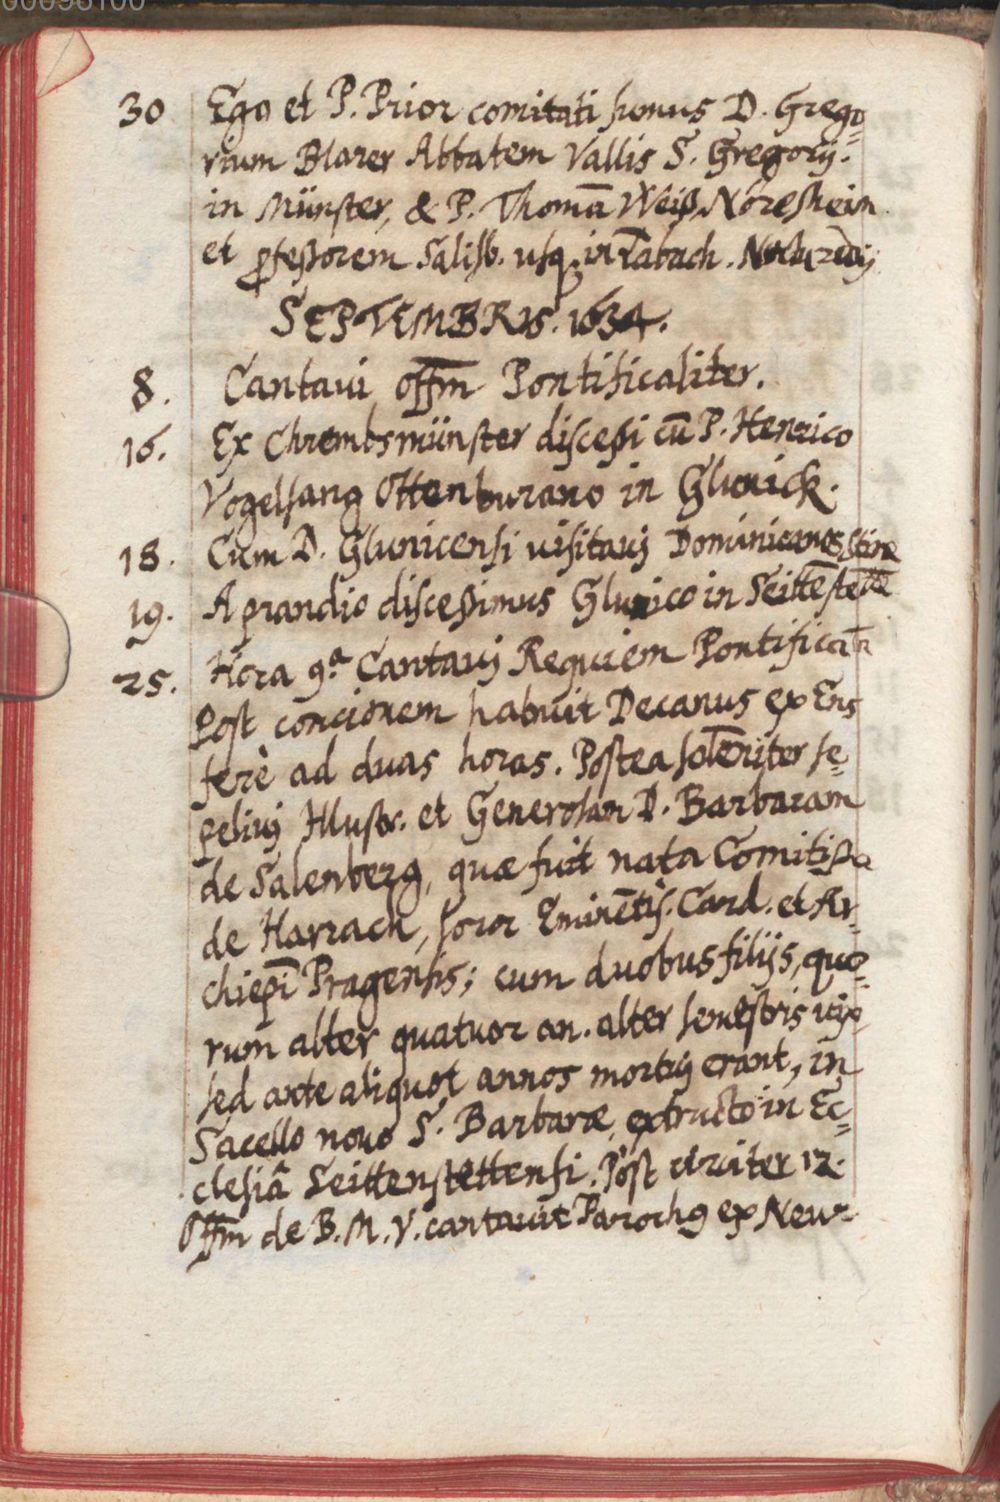 00096100
30 Ego et P. Prior comitati sumus D. Grego=
rium Blarer Abbatem Vallis S. Gregorij.
in Münster, & P. Thomā Weiß Nöreshein
et ꝓfeßorem Salisb. usq. in Labach.
SEPTEMBRIS. 1634.
8. Cantavi offm̄ Pontificaliter.
16. Ex Chrembsmünster disceßi cū P. Henrico
Vogelsang Ottenburano in Glunick.
18. Cum D. Glunicensi visitavj Dominicanos
19. A prandio disceßimus Glunico in Seittēstette
25. Hora 9.ª Cantavj Requiem
Post concionem habuit Decanus ex Ens
ferè ad duas horas. Postea solēniter se=
pelivj Illustr. et Generosam D. Barbaram
de Salenberg, quæ fuit nata Comitißa
de Harrach, soror Eminētis. Card. et Ar=
chiepī Pragensis; cum duobus filijs, quo=
rum alter quatuor an. alter semestris
sed ante aliquot annos mortuj erant, in
Sacello novo S. Barbaræ extructo in Ec=
clesiâ Seittenstettensi. Post circiter 12.
Offm̄ de B. M. V. cantavit Parochg ex Neu=